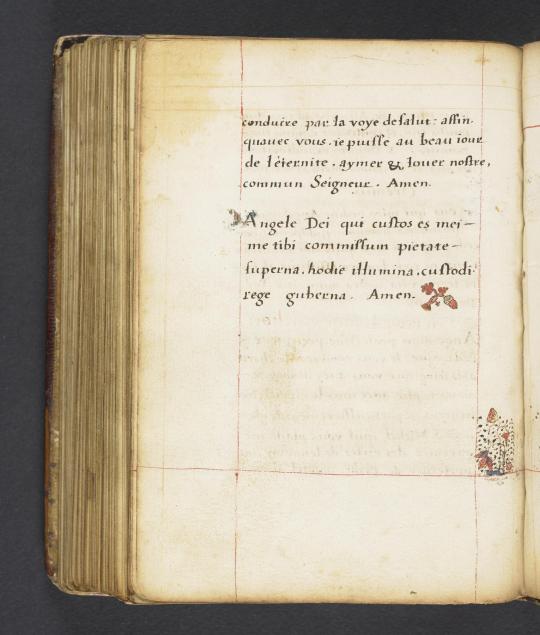 conduire par la voye de salut: affin
quavec vous. ie puisse au beau iour
de léternite. aymer & louer nostre,
commun Seigneur. Amen.
Angele Dei qui custos es mei-
me tibi commissum pietate-
superna. hodie illumina. custodi
rege guberna. Amen.